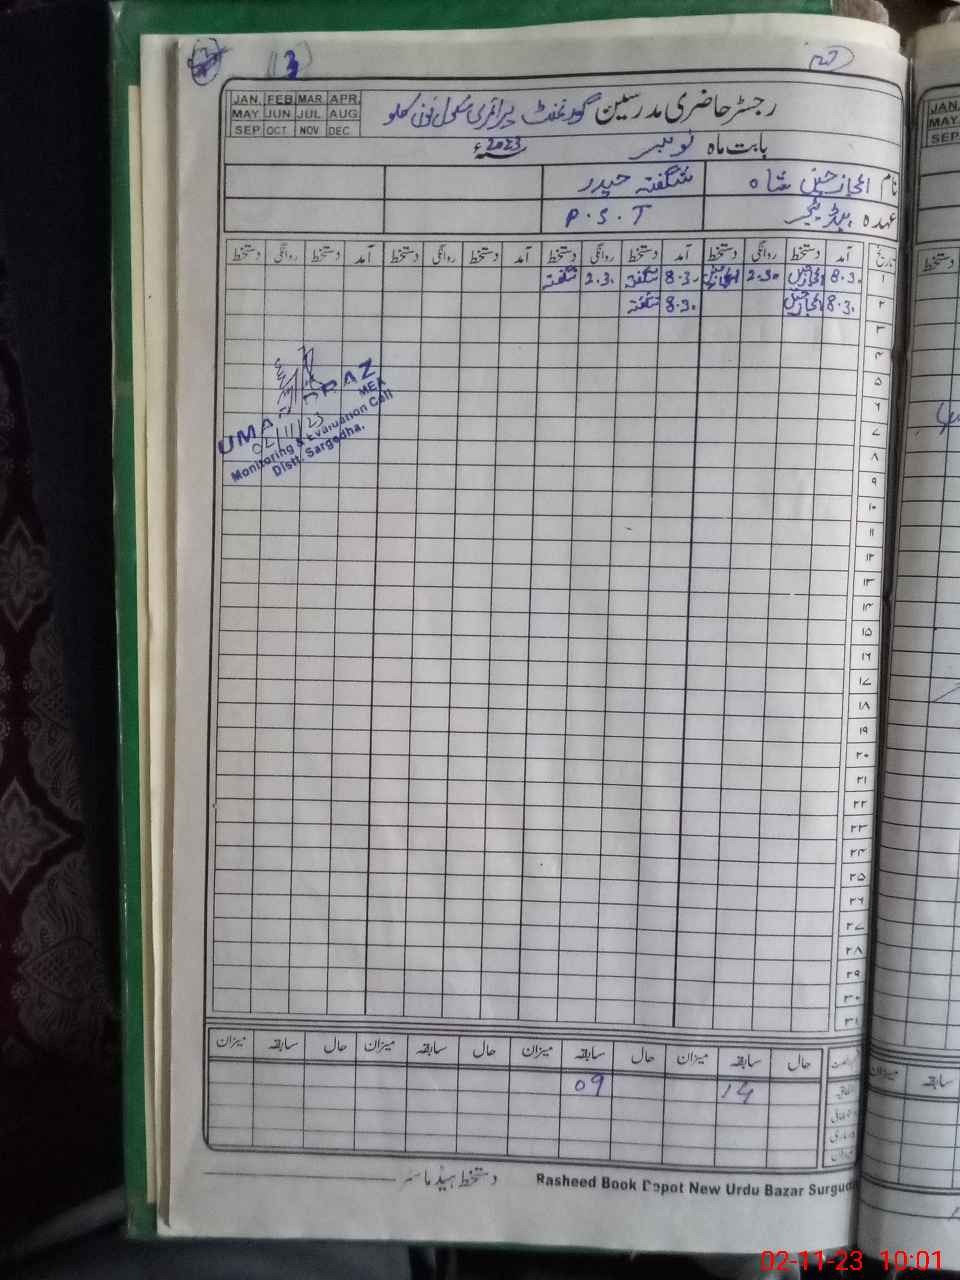 3
JAN. FEB MAR. APR.
MAY JUN JUL. AUG.
SEP OCT. NOV DEC.
رجسٹر حاضری مدرسین گورنمنٹ پرائمری سکول
بابت ماہ نومبر 2023ء
نام اعجاز حسین شاہ شگفتہ حیدر
عہدہ ہیڈ ٹیچر P.S.T
تاریخ آمد دستخط روانگی دستخط آمد دستخط روانگی دستخط آمد دستخط روانگی دستخط آمد دستخط روانگی دستخط
۱ 8.30 اعجاز حسین 2.30 اعجاز حسین 8.30 شگفتہ 2.30 شگفتہ
۲ 8.30 اعجاز حسین 8.30 شگفتہ
۳
۴
۵
۶
۷
۸
۹
۱۰
۱۱
۱۲
۱۳
۱۴
۱۵
۱۶
۱۷
۱۸
۱۹
۲۰
۲۱
۲۲
۲۳
۲۴
۲۵
۲۶
۲۷
۲۸
۲۹
۳۰
۳۱
UMAR DRAZ
02/11/23 MEA
Monitoring & Evaluation Cell
Distt. Sargodha.
حال سابقہ میزان حال سابقہ میزان حال سابقہ میزان حال سابقہ میزان
09
دستخط ہیڈ ماسٹر
Rasheed Book Depot New Urdu Bazar
JAN.
MAY.
SEP
دستخط
سابقہ میزان
02-11-23 10:01